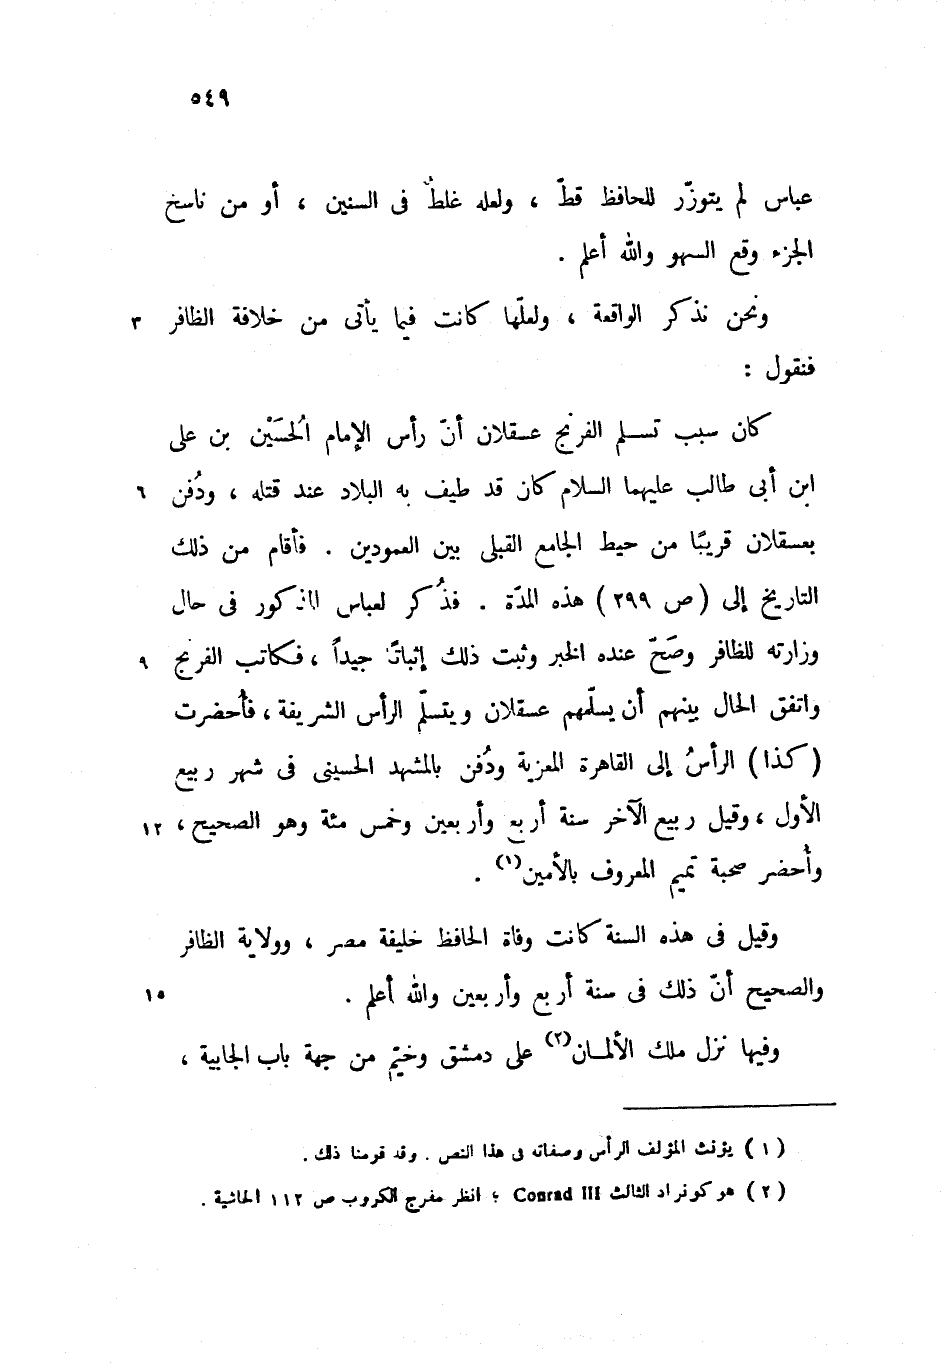 ٥٤٩
عباس لم يتوزّر للحافظ قطّ ، ولعله غلطٌ فى السنين ، أو من ناسخ
الجزء وقع السهو والله أعلم .
ونحن نذكر الواقعة ، ولعلّها كانت فيما يأتى من خلافة الظافر ٣
فنقول :
كان سبب تسلم الفرنج عسقلان أنّ رأس الإمام الحُسَيْن بن على
ابن أبى طالب عليهما السلام كان قد طيف به البلاد عند قتله ، ودُفن ٦
بعسقلان قريبًا من حيط الجامع القبلى بين العمودين . فأقام من ذلك
التاريخ إلى (ص ٢٩٩) هذه المدّة . فذُكر لعباس المذكور فى حال
وزارته للظافر وصَحّ عنده الخبر وثبت ذلك إثباتًا جيداً ، فكاتب الفرنج ٩
واتفق الحال بينهم أن يسلّمهم عسقلان ويتسلّم الرأس الشريفة ، فأُحضرت
(كذا) الرأسُ إلى القاهرة المعزية ودُفن بالمشهد الحسينى فى شهر ربيع
الأول ، وقيل ربيع الآخر سنة أربع وأربعين وخمس مئة وهو الصحيح ، ١٢
وأُحضر صحبة تميم المعروف بالأمين(١) .
وقيل فى هذه السنة كانت وفاة الحافظ خليفة مصر ، وولاية الظافر
والصحيح أنّ ذلك فى سنة أربع وأربعين والله أعلم . ١٥
وفيها نزل ملك الألمان(٢) على دمشق وخيّم من جهة باب الجابية ،
(١) يؤنث المؤلف الرأس وصفاته فى هذا النص . وقد قومنا ذلك .
(٢) هو كونراد الثالث Conrad III ؛ انظر مفرج الكروب ص ١١٢ الحاشية .